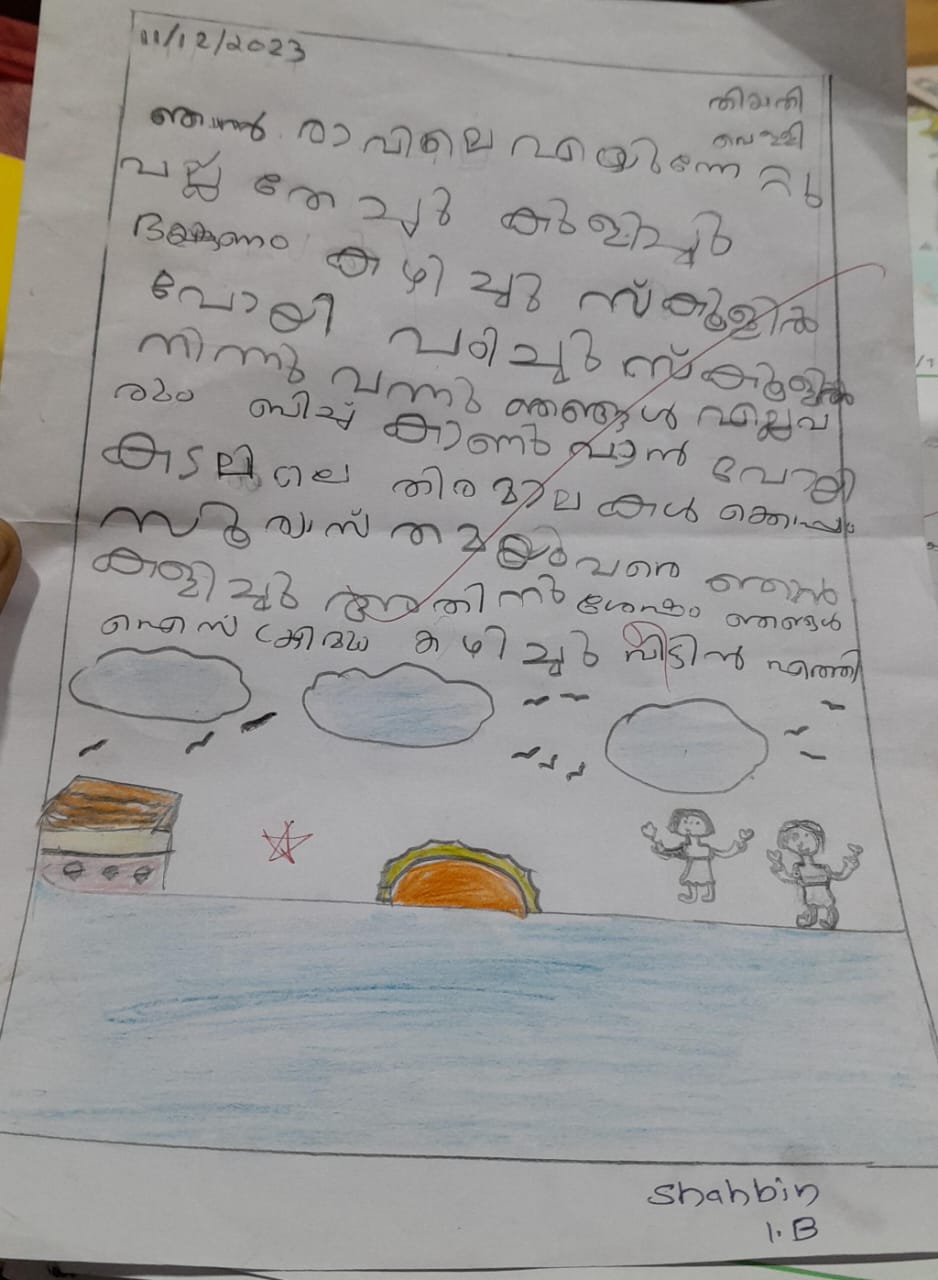 11/12/2023
തിയതി
വെള്ളി
ഞാൻ രാവിലെ എയുന്നേറ്റു
പല്ല് തേച്ചു കുളിച്ചു
ഭക്ഷണം കഴിച്ചു സ്കൂളിൽ
പോയി പഠിച്ചു സ്കൂളിൽ
നിന്നു വന്നു ഞങ്ങൾ എല്ലവ
രും ബിച്ച് കാണുവാൻ പോയി
കടലിലെ തിരമാലകൾ ക്കൊപ്പം
സൂര്യാസ്തമയംവരെ ഞാൻ
കളിച്ചു അതിനു ശേഷം ഞങ്ങൾ
ഐസ് ക്രീമും കഴിച്ചു വീടിൽ എത്തി
Shahbin
1.B